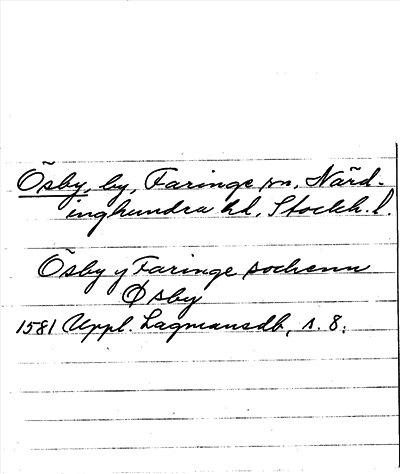 Ösby, by, Faringe sn, Närd-
inghundra hd, Stockh. l.
Ösby y Faringe sochenn
Øsby
1581 Uppl. Lagmansdb, s. 8.